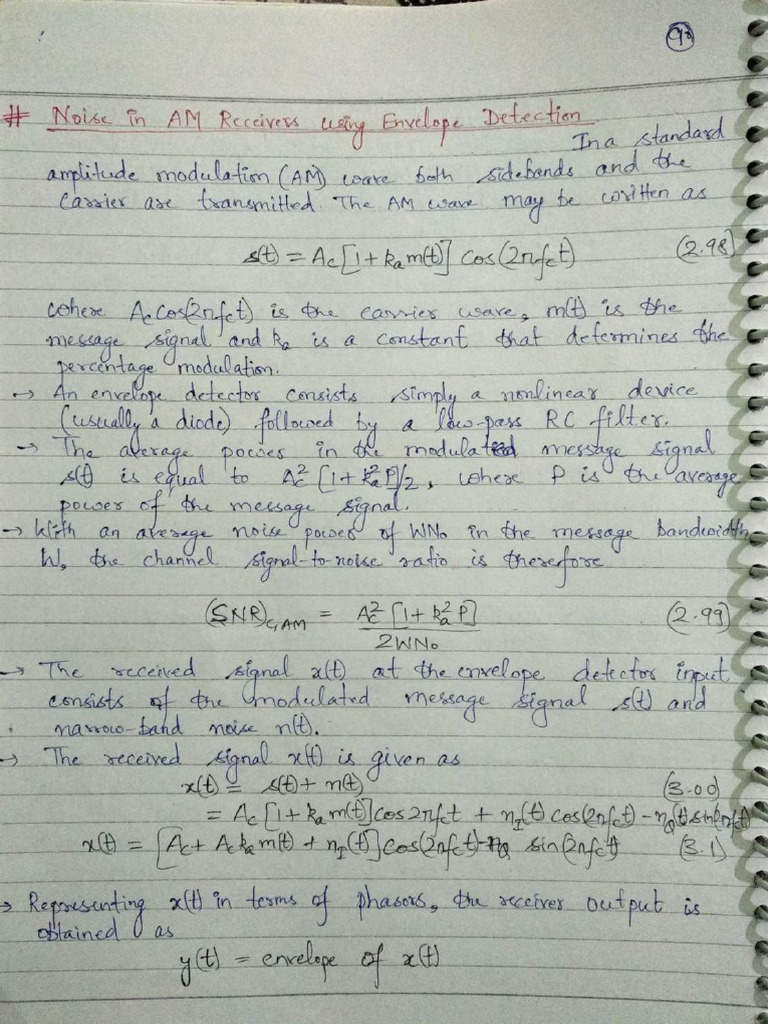 98
# Noise in AM Receivers using Envelope Detection
In a standard
amplitude modulation (AM) wave both sidebands and the
Carrier are transmitted. The AM wave may be written as
s(t) = Ac[1 + kam(t)] cos(2πfct) (2.98)
where Accos(2πfct) is the carrier wave, m(t) is the
message signal and ka is a constant that determines the
percentage modulation.
→ An envelope detector consists simply a nonlinear device
(usually a diode) followed by a low-pass RC filter.
→ The average power in the modulated message signal
s(t) is equal to Ac²[1 + ka²P]/2, where P is the average
power of the message signal.
→ With an average noise power of WN₀ in the message bandwidth
W, the channel signal-to-noise ratio is therefore
(SNR)C,AM = Ac²[1 + ka²P] (2.99)
2WN₀
→ The received signal x(t) at the envelope detector input
consists of the modulated message signal s(t) and
narrow-band noise n(t).
→ The received signal x(t) is given as
x(t) = s(t) + n(t) (3.00)
= Ac[1 + kam(t)]cos2πfct + nI(t)cos(2πfct) - nQ(t)sin(2πfct)
x(t) = [Ac + Ackam(t) + nI(t)]cos(2πfct) - nQ sin(2πfct) (3.1)
→ Representing x(t) in terms of phasors, the receiver output is
obtained as
y(t) = envelope of x(t)